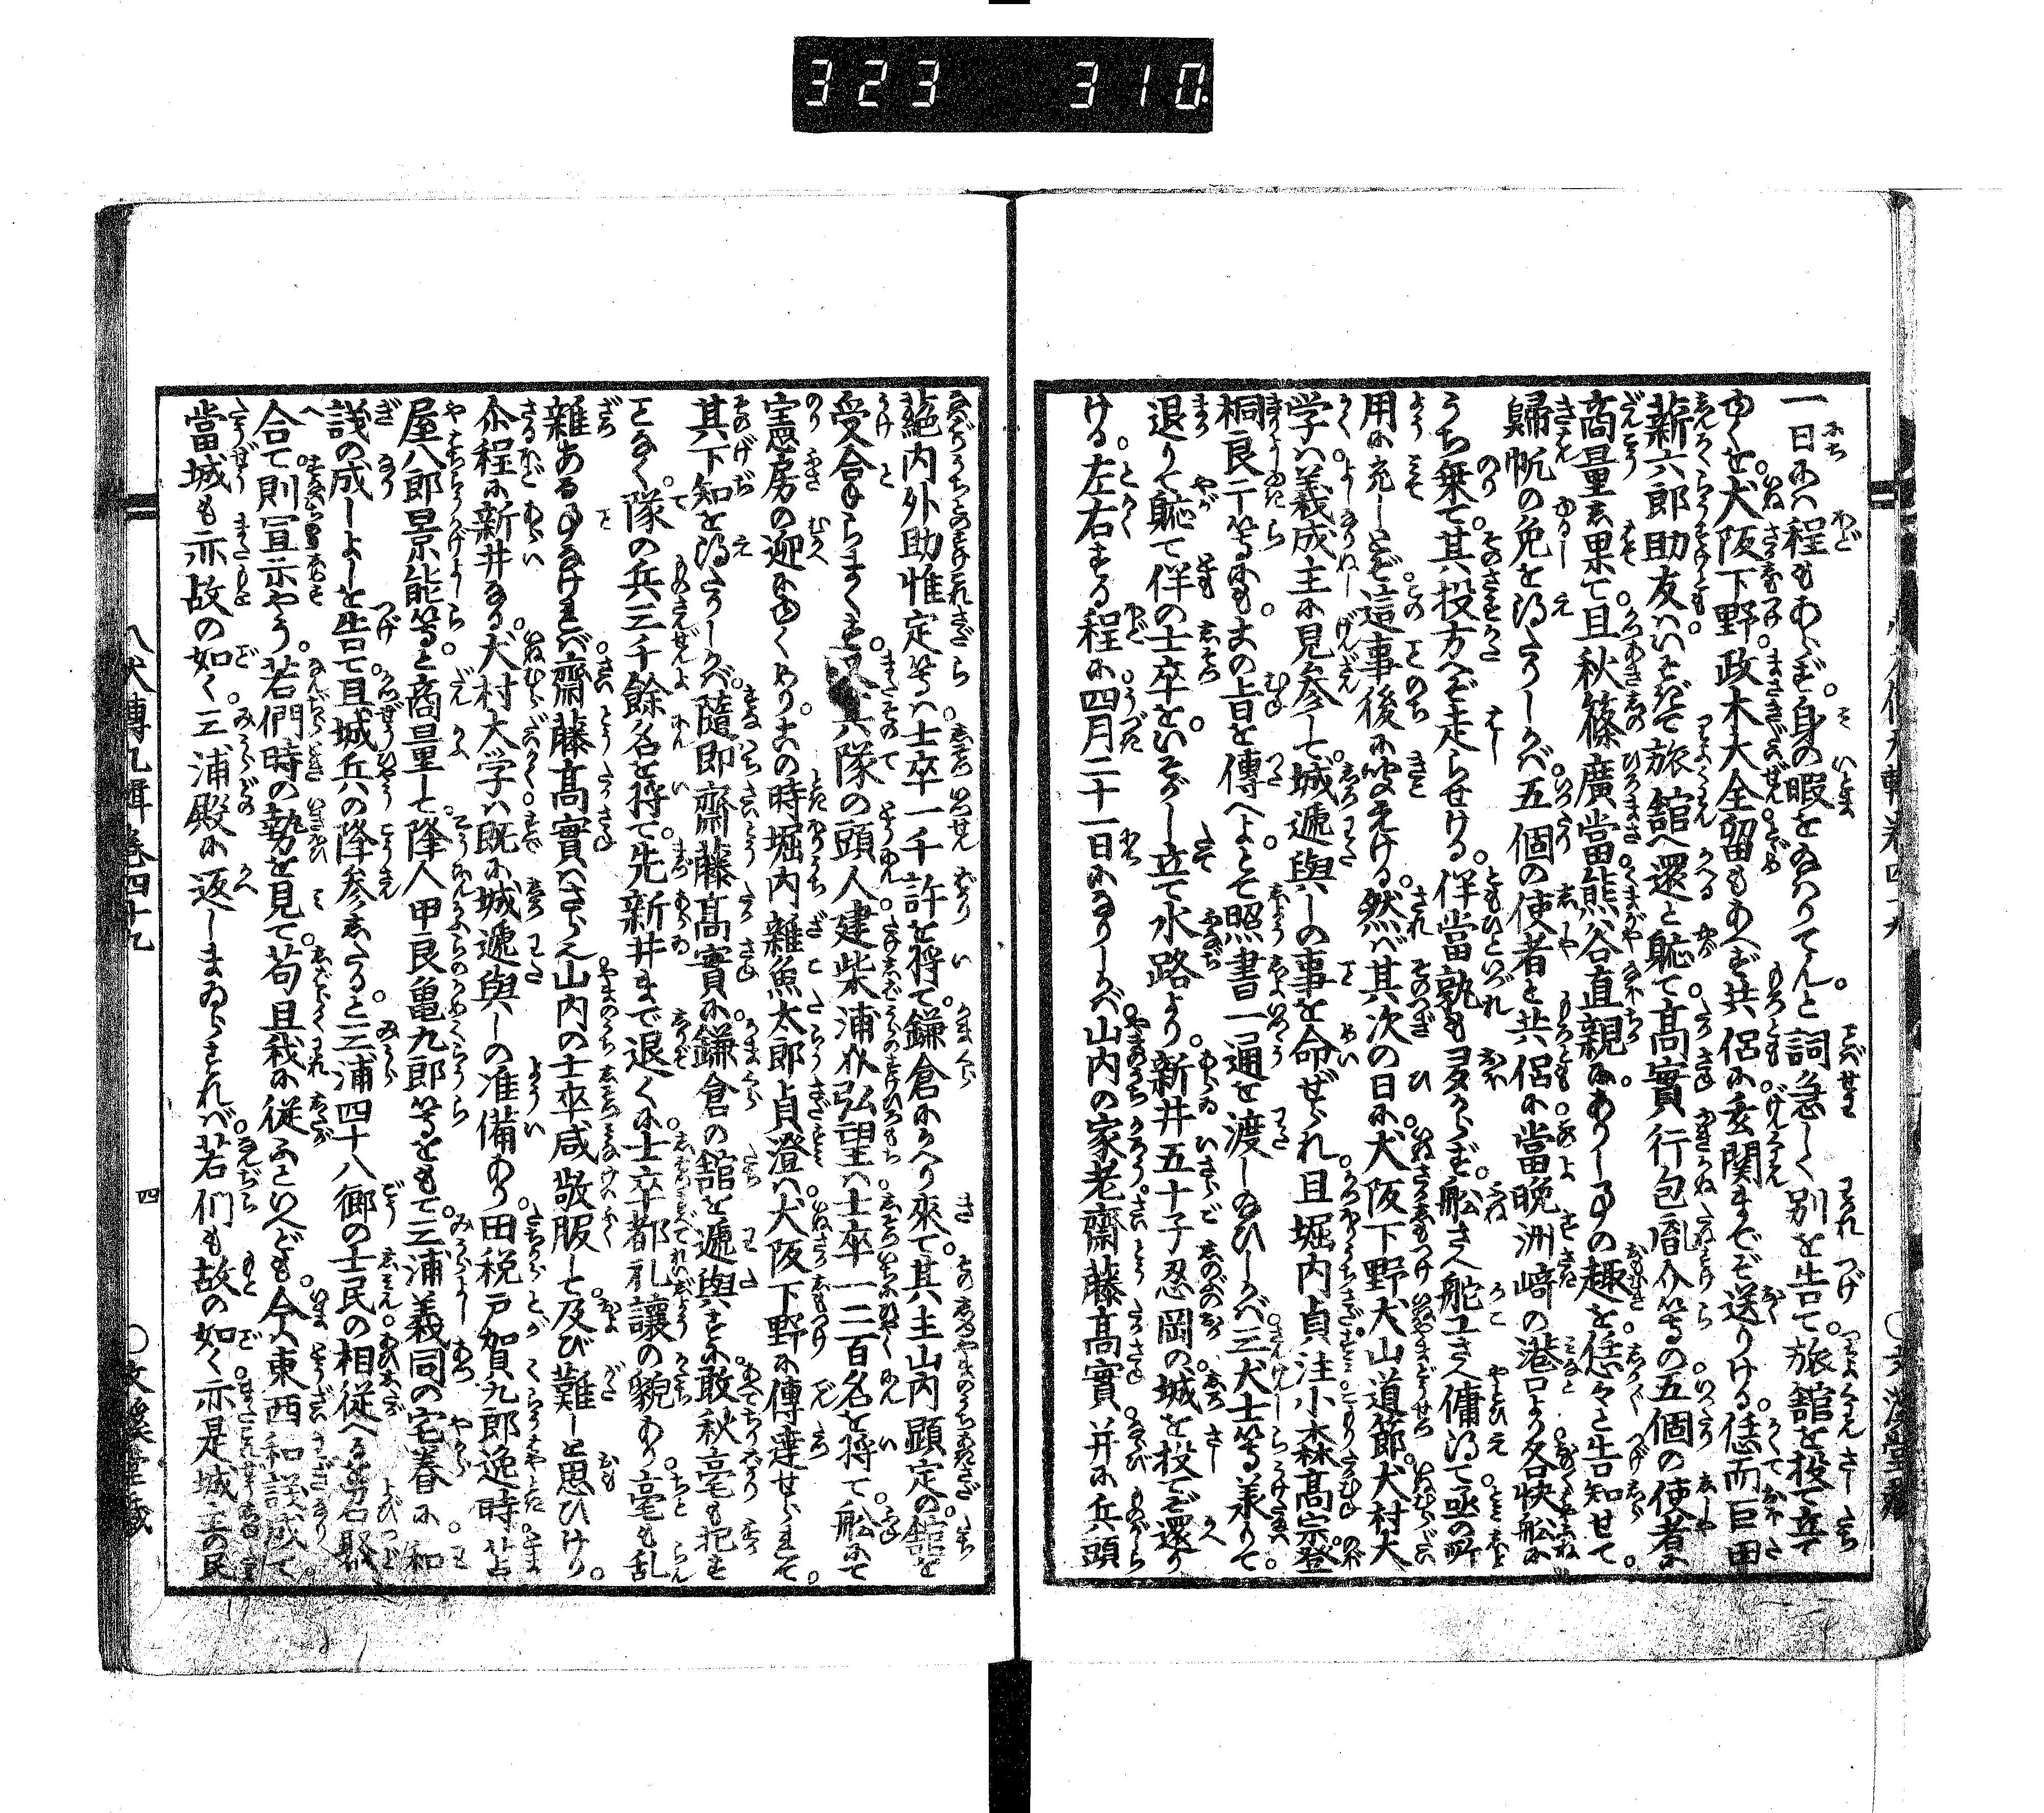 323 310
一日にハ程もあらず。身の暇を給ハりてんと。詞急しく別を告て。旅舘を投て立て
ゆくを。犬阪下野。政木大全。留もあへず共侶に。玄関までぞ送りける。恁而巨田
薪六郎助友ハ。いそぎて旅舘へ還と。軈て髙實行包胤介等の。五個の使者に
商量し果て。且秋篠廣當。熊谷直親に。ありし事の趣を。恁々と告知せて。
歸帆の免を得たりしかバ。五個の使者と共侶に。當晩洲﨑の港口より。各快船に
うち乗て。其投方へぞ走らせける。伴當孰も多からず。船さへ舵工さへ傭得て。亟の所
用に充しとぞ。這事後に聞えける。然バ其次の日に。犬阪下野犬山道節。犬村大
学ハ。義成主に見参して。城遞與しの事を命ぜられ。且堀内貞住小森髙宗登
桐良于等にも。その旨を傳へよとて。照書一通を渡し給ひしかバ。三犬士等承りて。
退りて軈て伴の士卒を。いそがし立て水路より。新井五十子忍岡の。城を投てぞ還り
ける。左右する程に。四月二十一日になりしかバ。山内の家老齋藤髙實。并に兵頭
八犬傳九輯巻四十九
絶内外助惟定等ハ。士卒一千許を將て。鎌倉にかへり來て。其主山内顕定の。舘を
受合らまくす。兵隊の頭人。建柴浦介弘望ハ。士卒一二百名を將て船にて
憲房の迎にゆくめり。この時堀内雜魚太郎貞澄ハ。犬阪下野に傳達せられて。
其下知を得たりしかバ。隨即齋藤髙實に。鎌倉の舘を遞與すに。敢秋毫も犯す
ことなく。隊の兵三千餘名を將て。先新井まで退くに。士卒都礼讓の貌あり。毫も乱
雜ある事なけれバ。齋藤髙實ハさらなり。山内の士卒咸敬服して。及び難しと思ひけり。
尒程に新井なる。犬村大学ハ。既に城遞與しの准備あり。田税戸賀九郎逸時。苫
屋八郎景能等と商量して。降人甲良亀九郎等をもて。三浦義同の宅眷に。和
議の成しよしを告て。且城兵の降参したると。三浦四十八郷の士民の相従へるを召聚
合て。則宣示やう。若們時の勢を見て。苟且我に従ふといへども。今東西和談成て。
當城も亦故の如く。三浦殿に返しまゐらすれバ。若们も故の如く。亦是城主の民
八犬傳九輯巻四十九
四
〇文溪堂藏